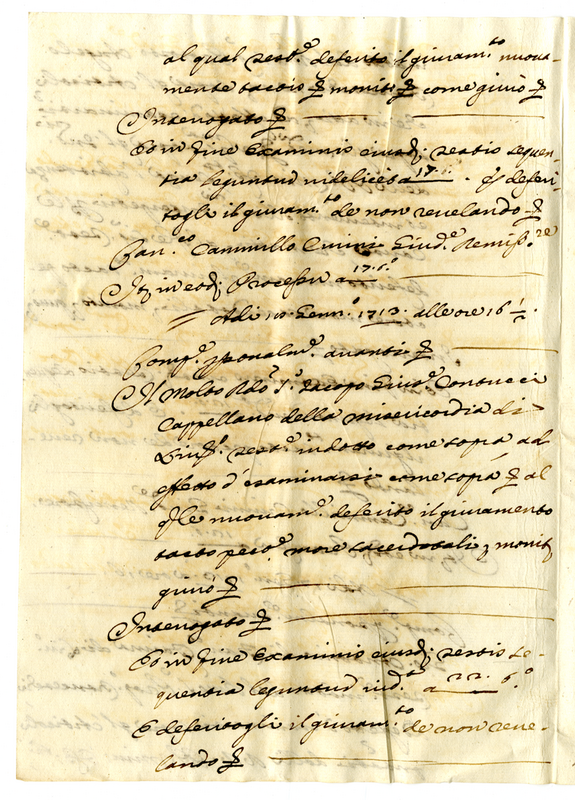 al qual test.e deferito il giuram.to nuova-
mente tactis & monit. & come giurò &
Interrogato &
Et in fine Examinis eiusd. testis sequen-
tia leguntur videlicet a 17. deferi-
togli il giuram.to de non revelando &
Can.co Cammillo Giud.e Remiss.re
It. in eod. Processu a 17. 6.o
Adi 10 Genn.o 1713. alle ore 16 1/2
Comp.e p.sonalm.e avanti &
Il Molto Rdo S.r Jacopo Contucci
Cappellano della misericordia di
test.e indotto come sopra ad
effetto d'esaminarsi come sopra & al
q.le nuovam.e deferito il giuramento
tacto pect.e more sacerdotali, monit.
giurò &
Interrogato &
Et in fine Examinis eiusd. testis se-
quentia leguntur vid.t a 22. 6.o
E deferitogli il giuram.to de non reve-
lando &